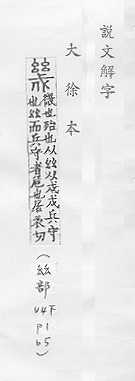 說文解字
大徐本
幾 微也殆也从𢆶从戍戍兵守
也𢆶而兵守者危也居衣切
(𢆶部 U4下 P1 b5)